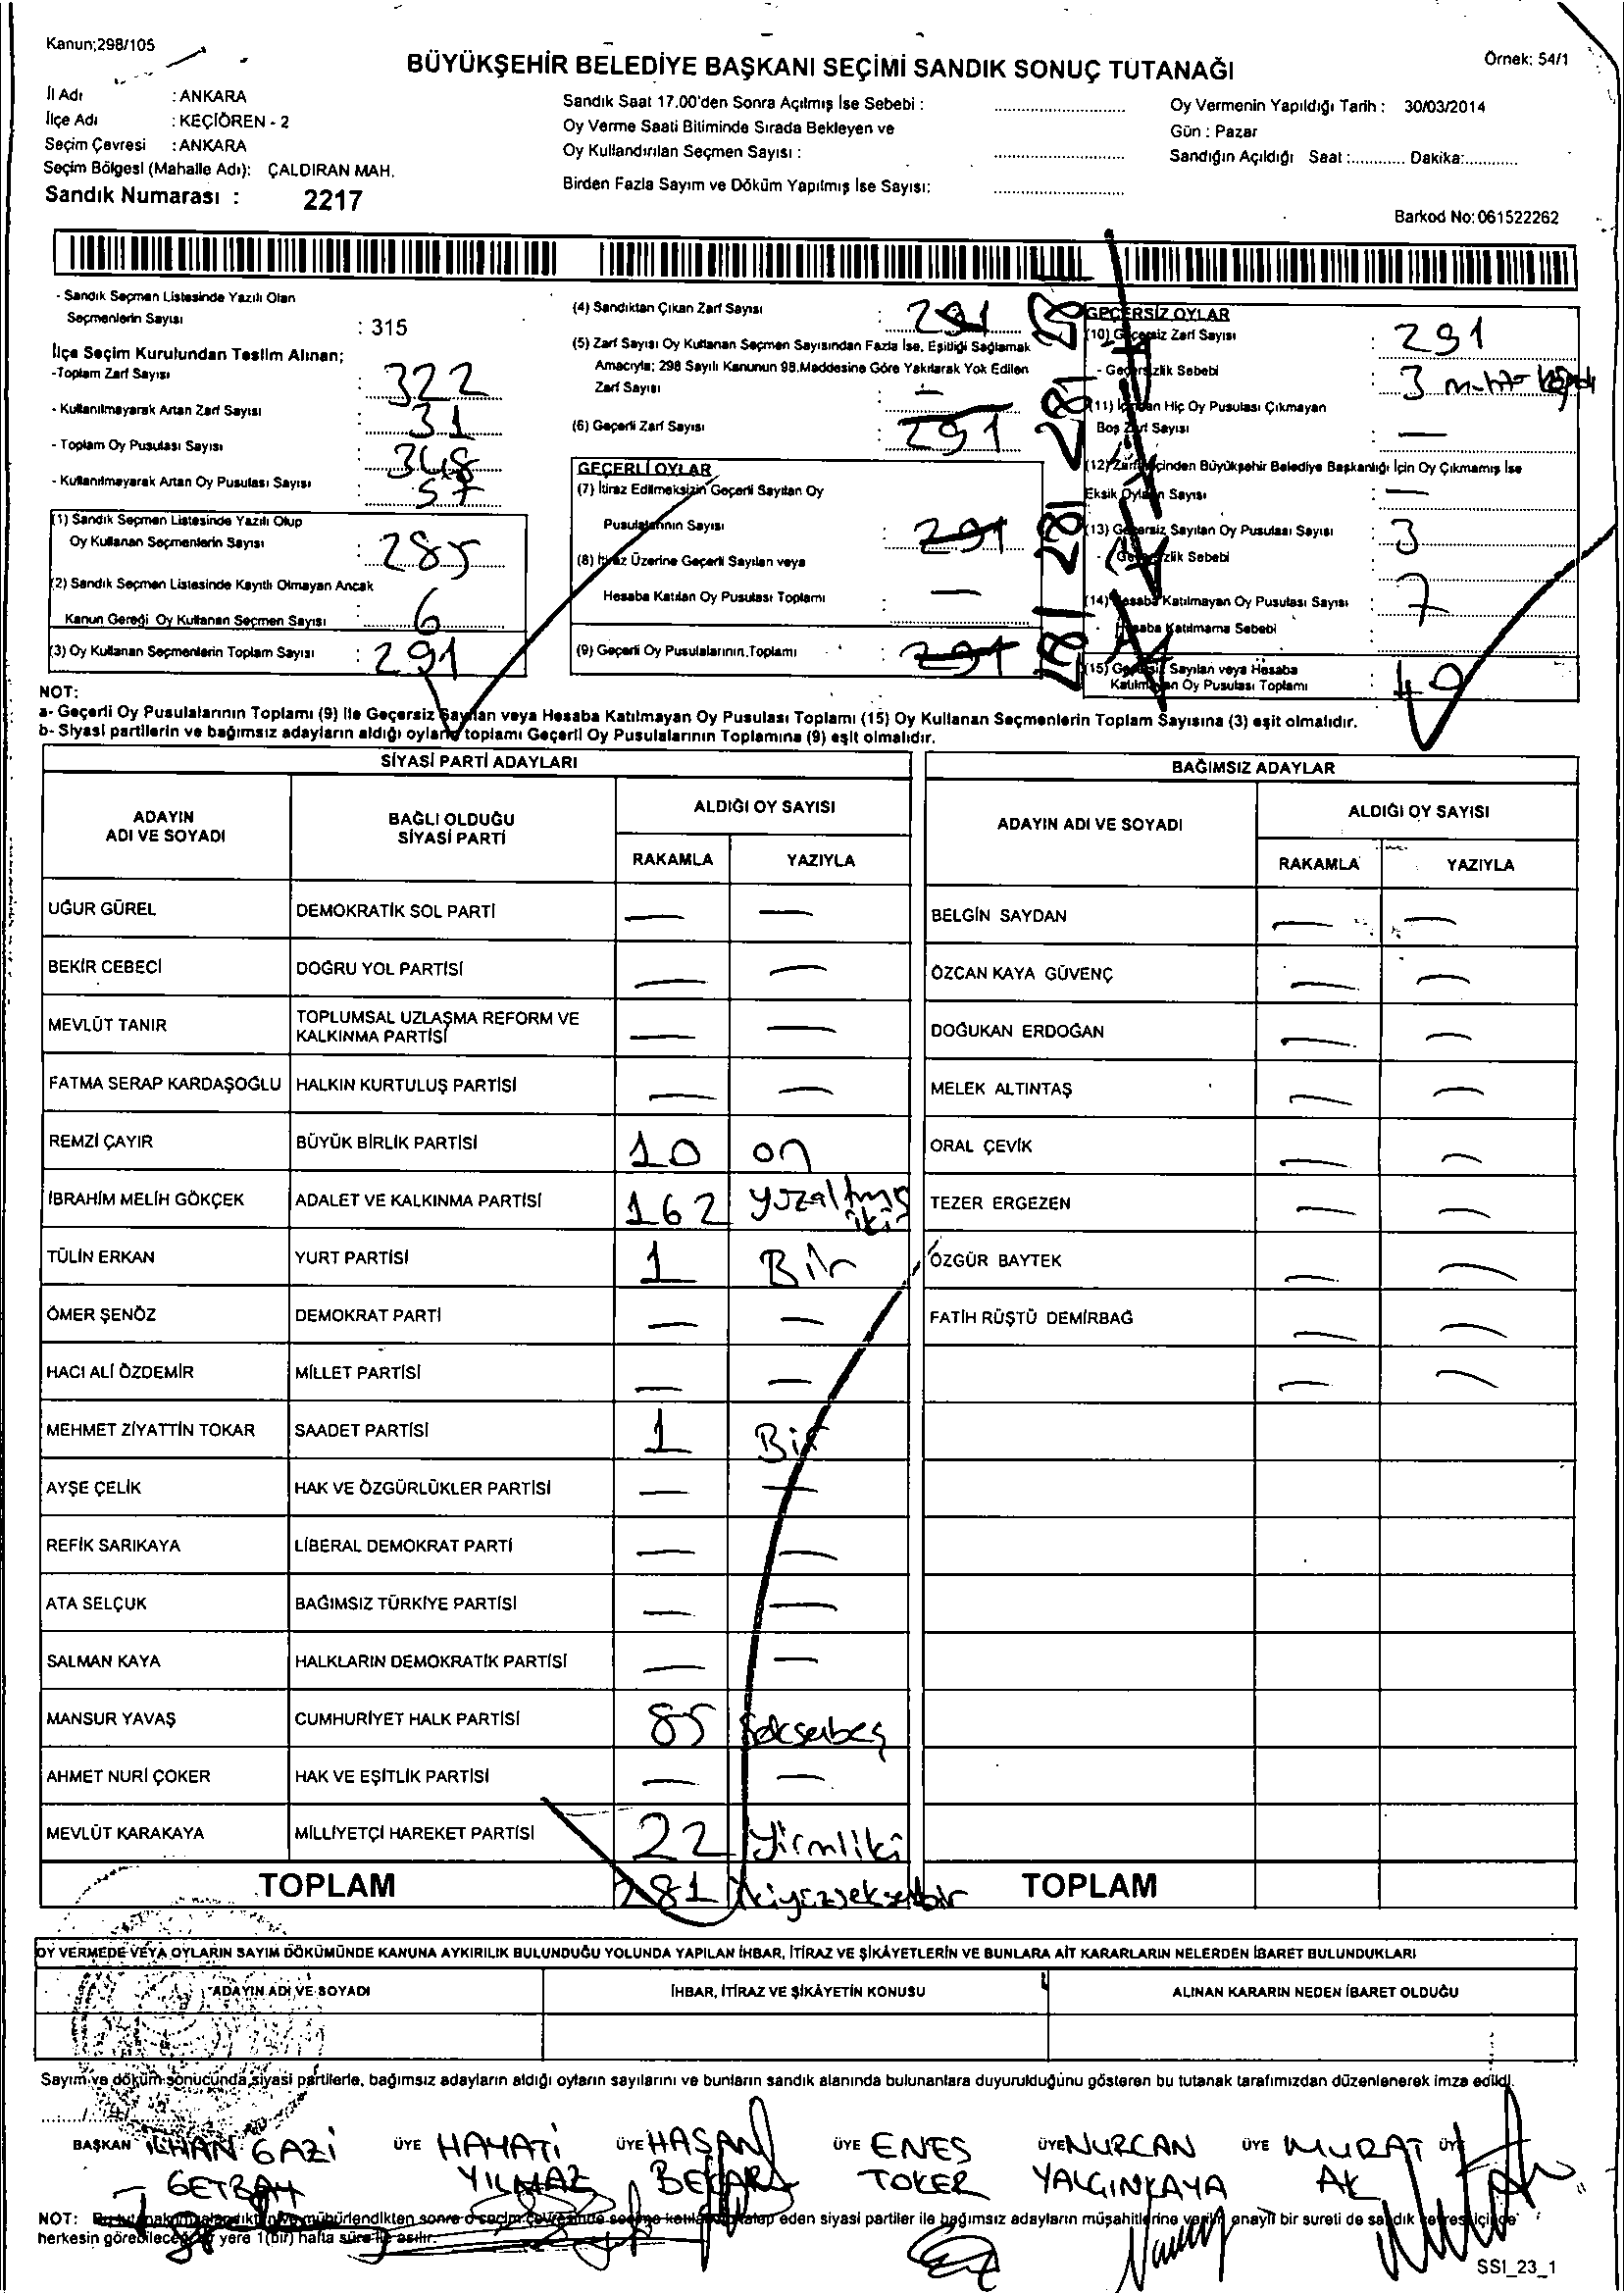 Kanun;298/105
BÜYÜKŞEHİR BELEDİYE BAŞKANI SEÇİMİ SANDIK SONUÇ TUTANAĞI
Örnek: 54/1
İl Adı : ANKARA
İlçe Adı : KEÇİÖREN - 2
Seçim Çevresi : ANKARA
Seçim Bölgesi (Mahalle Adı): ÇALDIRAN MAH.
Sandık Numarası : 2217
Sandık Saat 17.00'den Sonra Açılmış İse Sebebi :
Oy Verme Saati Bitiminde Sırada Bekleyen ve
Oy Kullandırılan Seçmen Sayısı :
Birden Fazla Sayım ve Döküm Yapılmış İse Sayısı:
Oy Vermenin Yapıldığı Tarih : 30/03/2014
Gün : Pazar
Sandığın Açıldığı Saat :............ Dakika:............
Barkod No: 061522262
- Sandık Seçmen Listesinde Yazılı Olan
Seçmenlerin Sayısı : 315
İlçe Seçim Kurulundan Teslim Alınan;
-Toplam Zarf Sayısı : 322
- Kullanılmayarak Artan Zarf Sayısı : 31
- Toplam Oy Pusulası Sayısı : 348
- Kullanılmayarak Artan Oy Pusulası Sayısı : 57
(1) Sandık Seçmen Listesinde Yazılı Olup
Oy Kullanan Seçmenlerin Sayısı : 285
(2) Sandık Seçmen Listesinde Kayıtlı Olmayan Ancak
Kanun Gereği Oy Kullanan Seçmen Sayısı : 6
(3) Oy Kullanan Seçmenlerin Toplam Sayısı : 291
(4) Sandıktan Çıkan Zarf Sayısı : 291
(5) Zarf Sayısı Oy Kullanan Seçmen Sayısından Fazla İse, Eşitliği Sağlamak
Amacıyla; 298 Sayılı Kanunun 98.Maddesine Göre Yakılarak Yok Edilen
Zarf Sayısı : —
(6) Geçerli Zarf Sayısı : 291
GEÇERLİ OYLAR
(7) İtiraz Edilmeksizin Geçerli Sayılan Oy
Pusulalarının Sayısı : 291 281
(8) İtiraz Üzerine Geçerli Sayılan veya
Hesaba Katılan Oy Pusulası Toplamı : —
(9) Geçerli Oy Pusulalarının Toplamı : 291 281
GEÇERSİZ OYLAR
(10) Geçersiz Zarf Sayısı : 291
- Geçersizlik Sebebi : 3
(11) İçinden Hiç Oy Pusulası Çıkmayan
Boş Zarf Sayısı : —
(12) Zarf İçinden Büyükşehir Belediye Başkanlığı İçin Oy Çıkmamış İse
Eksik Oyların Sayısı : —
(13) Geçersiz Sayılan Oy Pusulası Sayısı : 3
- Geçersizlik Sebebi
(14) Hesaba Katılmayan Oy Pusulası Sayısı : 7
- Hesaba Katılmama Sebebi
(15) Geçersiz Sayılan veya Hesaba
Katılmayan Oy Pusulası Toplamı : 10
NOT:
a- Geçerli Oy Pusulalarının Toplamı (9) İle Geçersiz Sayılan veya Hesaba Katılmayan Oy Pusulası Toplamı (15) Oy Kullanan Seçmenlerin Toplam Sayısına (3) eşit olmalıdır.
b- Siyasi partilerin ve bağımsız adayların aldığı oyların toplamı Geçerli Oy Pusulalarının Toplamına (9) eşit olmalıdır.
SİYASİ PARTİ ADAYLARI
ADAYIN ADI VE SOYADI BAĞLI OLDUĞU SİYASİ PARTİ ALDIĞI OY SAYISI
RAKAMLA YAZIYLA
UĞUR GÜREL DEMOKRATİK SOL PARTİ — —
BEKİR CEBECİ DOĞRU YOL PARTİSİ — —
MEVLÜT TANIR TOPLUMSAL UZLAŞMA REFORM VE KALKINMA PARTİSİ — —
FATMA SERAP KARDAŞOĞLU HALKIN KURTULUŞ PARTİSİ — —
REMZİ ÇAYIR BÜYÜK BİRLİK PARTİSİ 10 on
İBRAHİM MELİH GÖKÇEK ADALET VE KALKINMA PARTİSİ 162 yüzaltmış iki
TÜLİN ERKAN YURT PARTİSİ 1 Bir
ÖMER ŞENÖZ DEMOKRAT PARTİ — —
HACI ALİ ÖZDEMİR MİLLET PARTİSİ — —
MEHMET ZİYATTİN TOKAR SAADET PARTİSİ 1 Bir
AYŞE ÇELİK HAK VE ÖZGÜRLÜKLER PARTİSİ — —
REFİK SARIKAYA LİBERAL DEMOKRAT PARTİ — —
ATA SELÇUK BAĞIMSIZ TÜRKİYE PARTİSİ — —
SALMAN KAYA HALKLARIN DEMOKRATİK PARTİSİ — —
MANSUR YAVAŞ CUMHURİYET HALK PARTİSİ 85 Seksenbeş
AHMET NURİ ÇOKER HAK VE EŞİTLİK PARTİSİ — —
MEVLÜT KARAKAYA MİLLİYETÇİ HAREKET PARTİSİ 22 Yirmiiki
TOPLAM 281 ikiyüzseksenbir
BAĞIMSIZ ADAYLAR
ADAYIN ADI VE SOYADI ALDIĞI OY SAYISI
RAKAMLA YAZIYLA
BELGİN SAYDAN — —
ÖZCAN KAYA GÜVENÇ — —
DOĞUKAN ERDOĞAN — —
MELEK ALTINTAŞ — —
ORAL ÇEVİK — —
TEZER ERGEZEN — —
ÖZGÜR BAYTEK — —
FATİH RÜŞTÜ DEMİRBAĞ — —
— —
TOPLAM
OY VERMEDE VEYA OYLARIN SAYIM DÖKÜMÜNDE KANUNA AYKIRILIK BULUNDUĞU YOLUNDA YAPILAN İHBAR, İTİRAZ VE ŞİKÂYETLERİN VE BUNLARA AİT KARARLARIN NELERDEN İBARET BULUNDUKLARI
ADAYIN ADI VE SOYADI İHBAR, İTİRAZ VE ŞİKÂYETİN KONUSU ALINAN KARARIN NEDEN İBARET OLDUĞU
Sayım ve döküm sonucunda siyasi partilerle, bağımsız adayların aldığı oyların sayılarını ve bunların sandık alanında bulunanlara duyurulduğunu gösteren bu tutanak tarafımızdan düzenlenerek imza edildi.
BAŞKAN İLHAN GAZİ ÜYE HAYATİ YILMAZ ÜYE HASAN ÜYE ENES TOKER ÜYE NURCAN YALÇINKAYA ÜYE MURAT AK ÜYE
NOT: mühürlendikten sonra eden siyasi partiler ile bağımsız adayların müşahitlerine onaylı bir sureti de sandık
herkesin görebileceği bir yere 1(bir) hafta süre ile asılır.
SSI_23_1